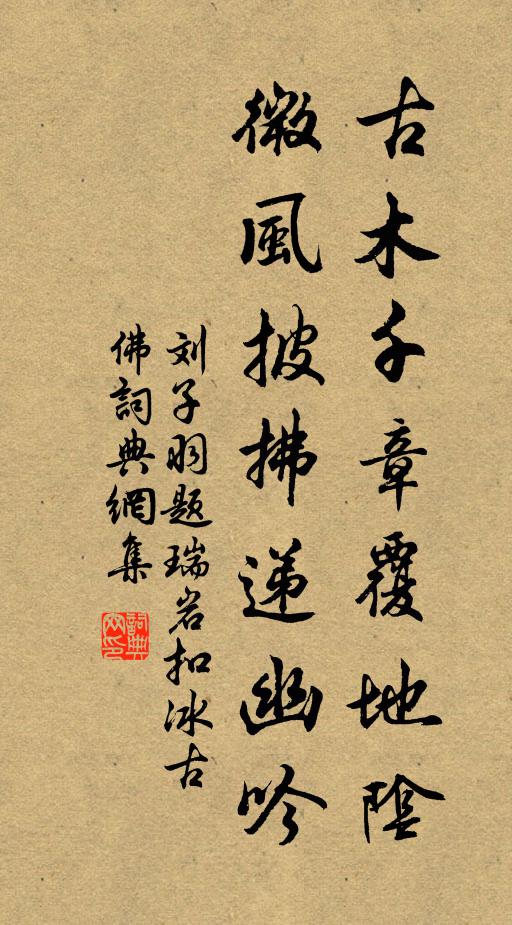 古木千章覆地陰
微風披拂递幽吟
刘子翙题瑞岩扣冰古
佛詞典網集
詞典網印